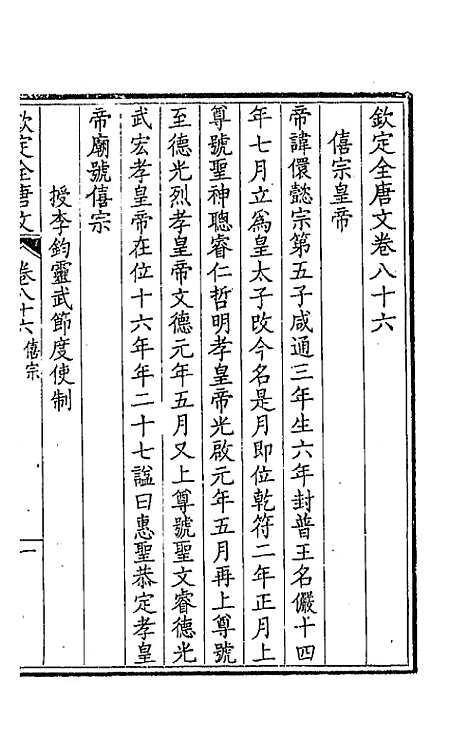 欽定全唐文卷八十六
僖宗皇帝
帝諱儇懿宗第五子咸通三年生六年封普王名儼十四
年七月立爲皇太子改今名是月即位乾符二年正月上
尊號聖神聰睿仁哲明孝皇帝光啟元年五月再上尊號
至德光烈孝皇帝文德元年五月又上尊號聖文睿德光
武宏孝皇帝在位十六年年二十七謚曰惠聖恭定孝皇
帝廟號僖宗
授李鈞靈武節度使制
欽定全唐文 卷八十六 僖宗 一